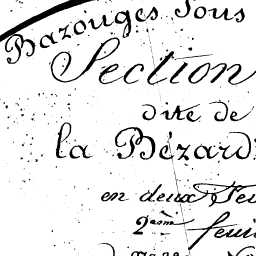 Bazouges Sous
Section
dite de
la Bézard
en deux Feu
2ème feui